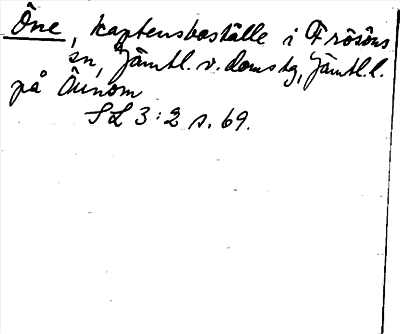 Öne, kaptensboställe i Frösöns
sn, Jämtl. v. domstg, Jämtl. l.
på Öunom
SL 3:2 s. 69.